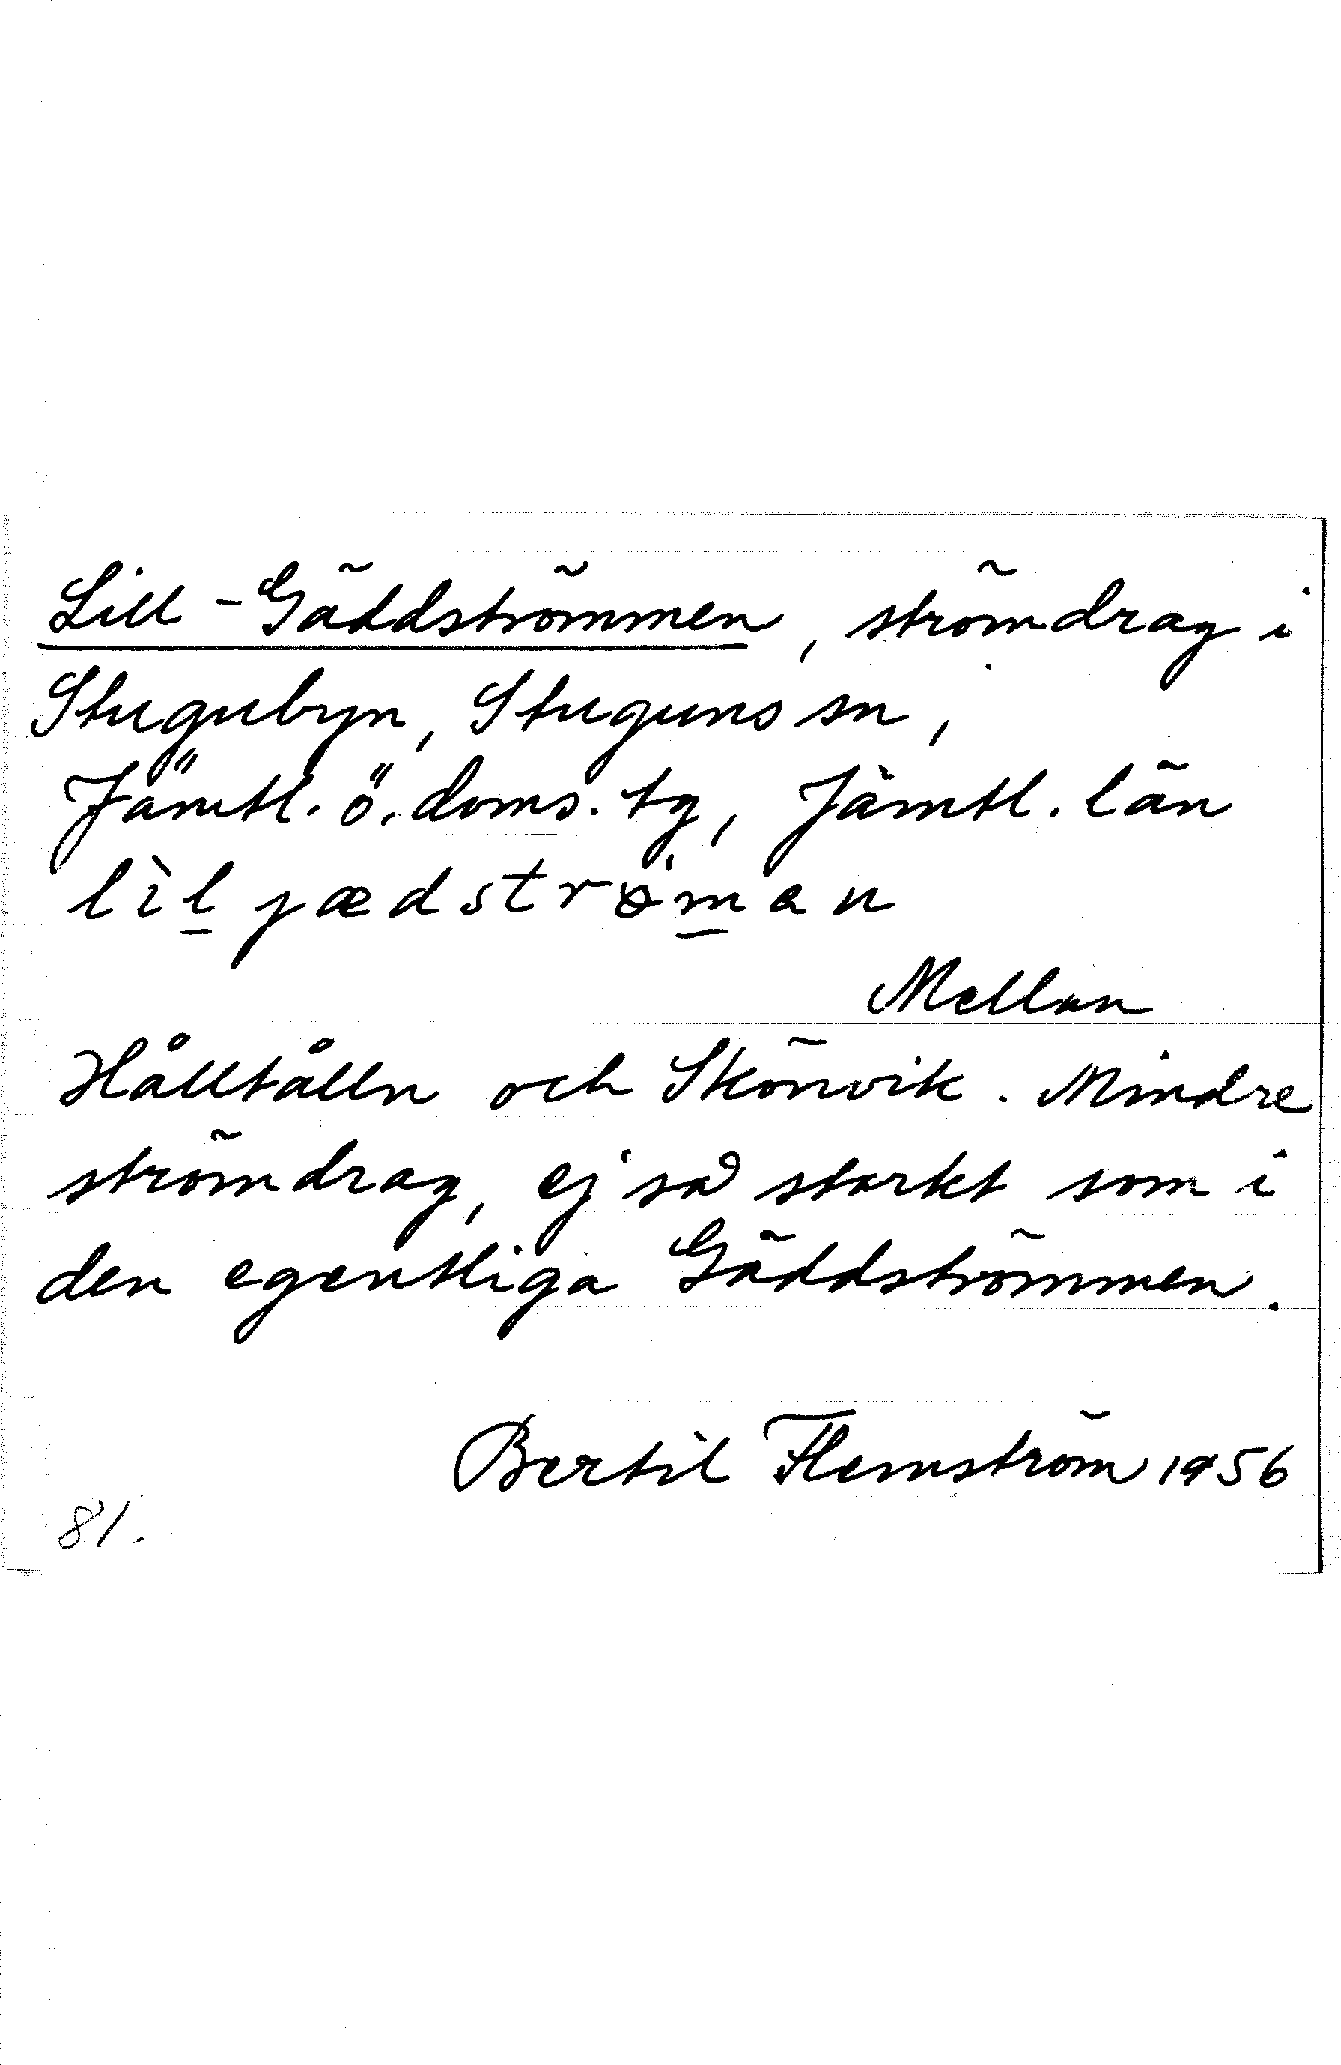 Lill-Gäddströmmen, strömdrag i
Stugubyn, Stuguns sn,
Jämtl. ö. doms. tg, Jämtl. län
lìl jædströman
Mellan
Hålltålln och Skönvik. Mindre
strömdrag, ej så starkt som i
den egentliga Gäddströmmen.
Bertil Flemström 1956
81.